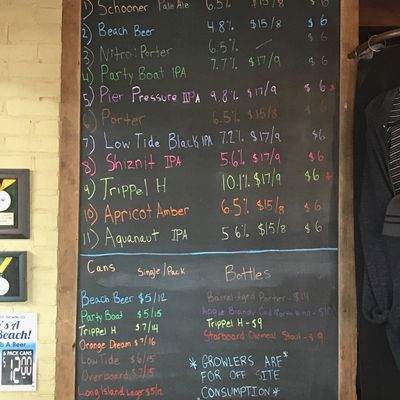 1) Schooner Pale Ale 6.5% $15/8 $6
2) Beach Beer 4.8% $15/8 $6
3) Nitro: Porter 6.5% $6
4) Party Boat IPA 7.7% $17/9 $6
5) Pier Pressure IPA 9.8% $17/9 $6
6) Porter 6.5% $15/8 $6
7) Low Tide Black IPA 7.2% $17/9 $6
8) Shiznit IPA 5.6% $17/9 $6
9) Trippel H 10.1% $17/9 $6
10) Apricot Amber 6.5% $15/8 $6
11) Aquanaut IPA 5.6% $15/8 $6
Cans Single/Pack
Beach Beer $5/12
Party Boat $5/15
Trippel H $7/14
Orange Dream $7/16
Low Tide $6/15
Overboard $7/15
Long Island Lager $5/12
Bottles
Barrel-Aged Porter - $14
Apple Brandy
Trippel H - $9
Starboard Oatmeal Stout - $9
*GROWLERS ARE*
FOR OFF SITE
*CONSUMPTION*
's A
Beach!
b A Beer
6 PACK CANS
$12.00